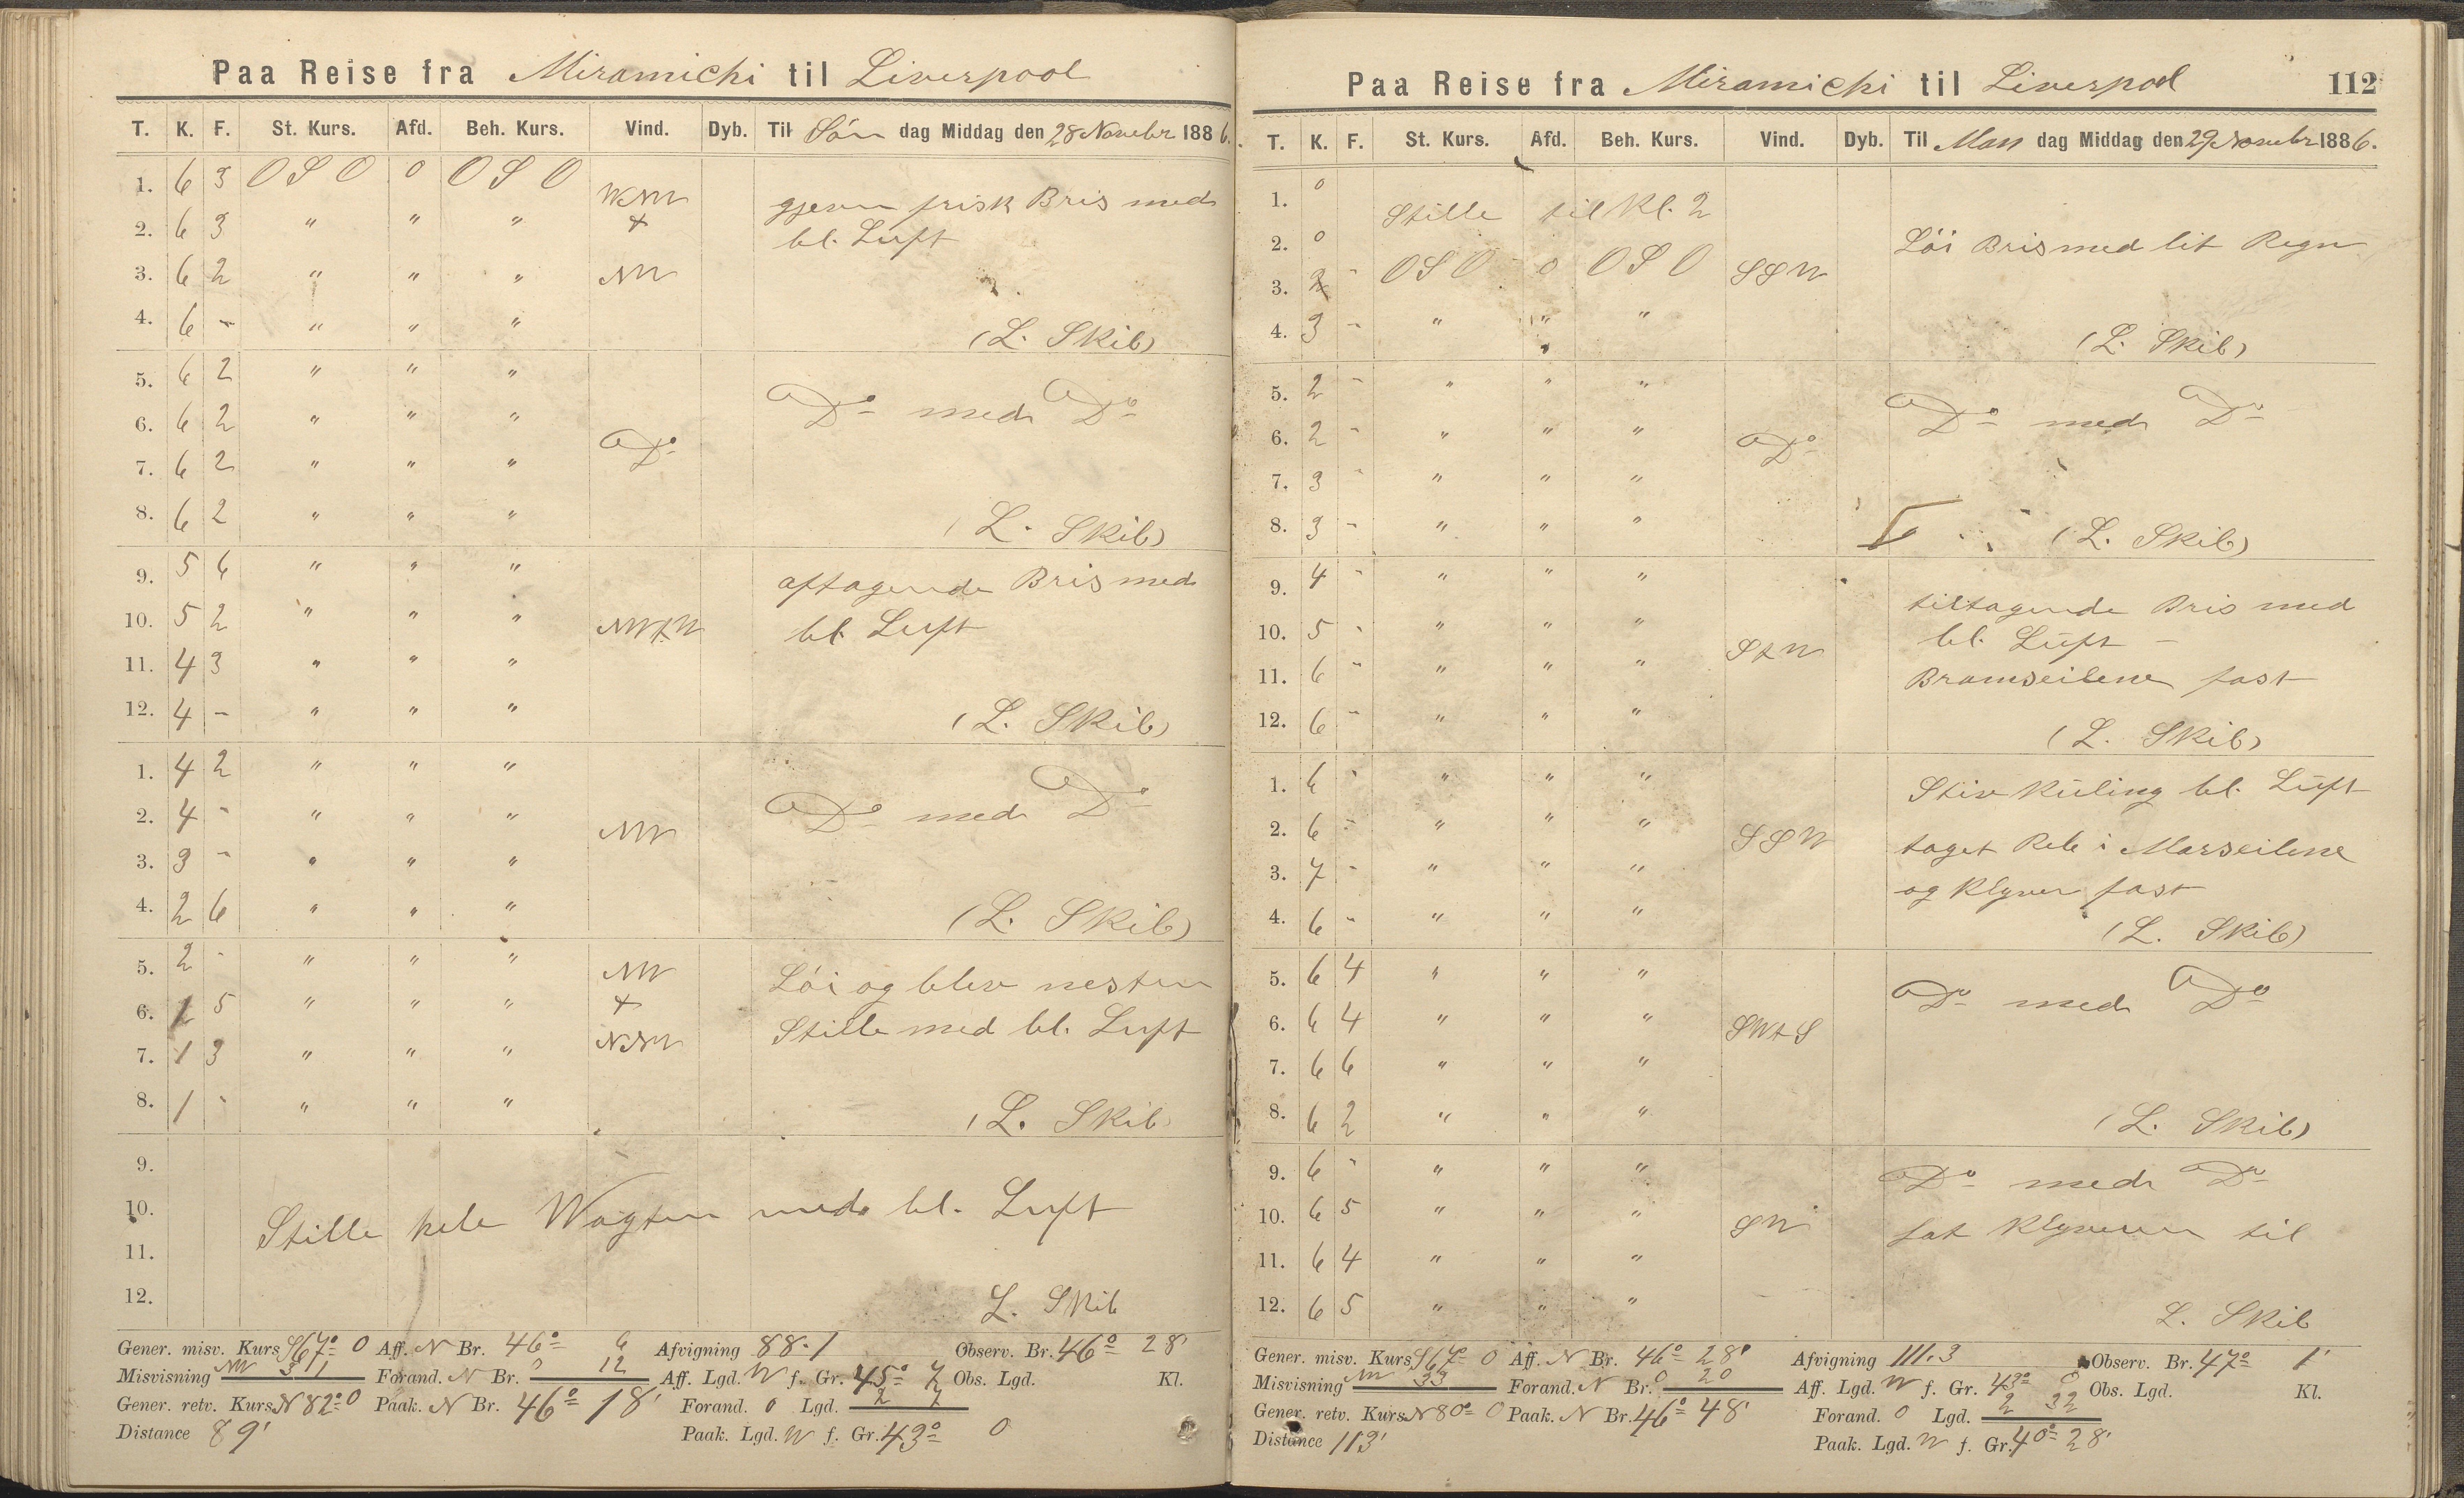 Paa Reise fra Miramichi til Liverpool
T. K. F. St. Kurs. Afd. Beh. Kurs. Vind. Dyb. Til Søn dag Middag den 28 Novembr 1886.
1. 6 3 OSO 0 OSO WNW gjevn frisk Bris med
2. 6 3 " " " + bl. Luft
3. 6 2 " " " NW
4. 6 - " " " (L. Skib)
5. 6 2 " " "
6. 6 2 " " " Do med Do
7. 6 2 " " " Do
8. 6 2 " " " (L. Skib)
9. 5 6 " " " aftagende Bris med
10. 5 2 " " " NWtW bl. Luft
11. 4 3 " " "
12. 4 - " " " (L. Skib)
1. 4 2 " " "
2. 4 - " " " NW Do med Do
3. 3 - " " "
4. 2 6 " " " (L. Skib)
5. 2 - " " " NW Løi og blev nesten
6. 1 5 " " " + Stille med bl. Luft
7. 1 3 " " " NNW
8. 1 - " " " (L. Skib
9.
10. Stille hele Wagten med bl. Luft
11.
12. L. Skib
Gener. misv. Kurs S67° O Aff. N Br. 46° 6 Afvigning 88.1 Observ. Br. 46° 28'
Misvisning NW 31 Forand. N Br. 0 12 Aff. Lgd. W f. Gr. 45° 7 Obs. Lgd. Kl.
Gener. retv. Kurs N82° O Paak. N Br. 46° 18' Forand. O Lgd. 2 7
Distance 89' Paak. Lgd. W f. Gr. 43° 0
Paa Reise fra Miramichi til Liverpool 112
T. K. F. St. Kurs. Afd. Beh. Kurs. Vind. Dyb. Til Man dag Middag den 29 Novembr 1886.
1. 0 Stille til Kl. 2
2. 0 Løi Bris med lit Regn
3. 2 - OSO 0 OSO SSW
4. 3 - " " " (L. Skib)
5. 2 - " " "
6. 2 - " " " Do Do med Do
7. 3 - " " "
8. 3 - " " " (L. Skib)
9. 4 - " " " tiltagende Bris med
10. 5 - " " " StW bl. Luft -
11. 6 - " " " Bramseilene fast
12. 6 - " " " (L. Skib)
1. 6 - " " " Stiv Kuling bl. Luft
2. 6 - " " " SSW taget Reb i Marseilene
3. 7 - " " " og Klyver fast
4. 6 - " " " (L. Skib)
5. 6 4 " " " Do med Do
6. 6 4 " " " SWtS
7. 6 6 " " "
8. 6 2 " " " (L. Skib)
9. 6 - " " " Do med Do
10. 6 5 " " " SW sat Klyveren til
11. 6 4 " " "
12. 6 5 " " " L. Skib
Gener. misv. Kurs S67° O Aff. N Br. 46° 28' Afvigning 111.3 Observ. Br. 47° 1'
Misvisning NW 33 Forand. N Br. 0 20 Aff. Lgd. W f. Gr. 43° 0 Obs. Lgd. Kl.
Gener. retv. Kurs N80° O Paak. N Br. 46° 48' Forand. O Lgd. 2 32
Distance 113' Paak. Lgd. W f. Gr. 40° 28'